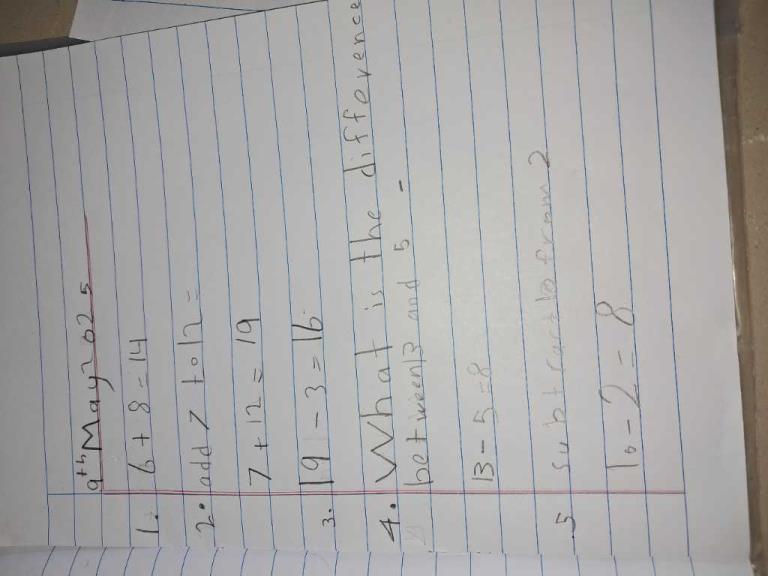 9th May 2025
1. 6 + 8 = 14
2. add 7 to 12 =
7 + 12 = 19
3. 19 - 3 = 16
4. What is the difference
between 13 and 5 -
13 - 5 = 8
5 subtract 10 from 2
10 - 2 = 8